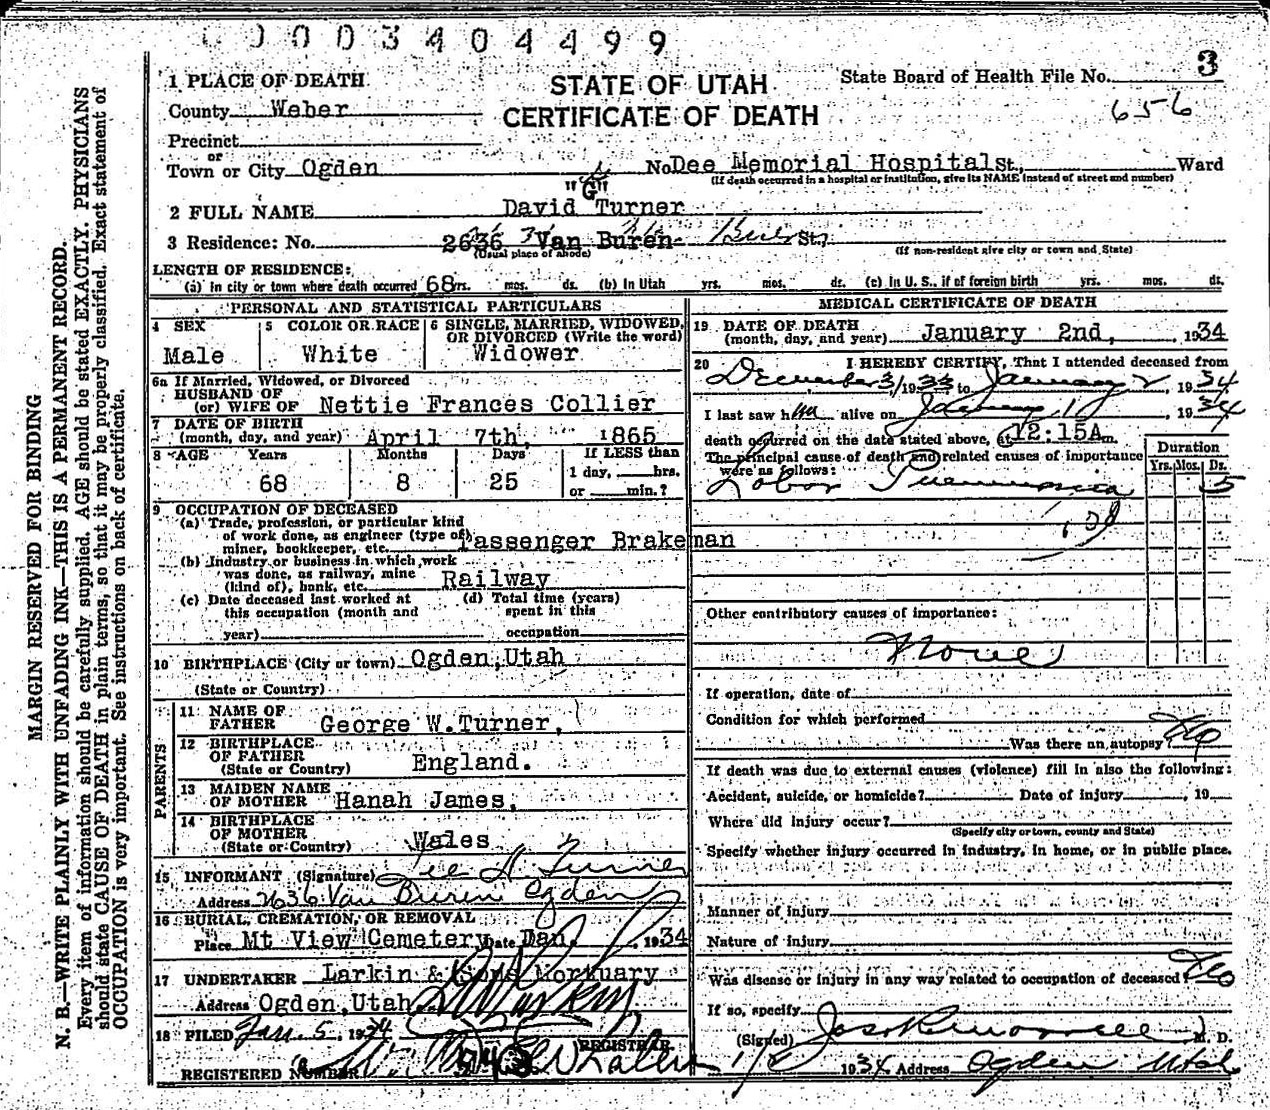 0003404499
3
1 PLACE OF DEATH
STATE OF UTAH
State Board of Health File No.
County Weber
CERTIFICATE OF DEATH
656
Precinct
or
Town or City Ogden No Dee Memorial Hospital St., Ward
(If death occurred in a hospital or institution, give its NAME instead of street and number)
"G"
2 FULL NAME David Turner
3 Residence: No. 2636 Van Buren St.
(Usual place of abode) (If non-resident give city or town and State)
LENGTH OF RESIDENCE:
(a) In city or town where death occurred 68 yrs. mos. ds. (b) In Utah yrs. mos. ds. (c) In U. S., if of foreign birth yrs. mos. ds.
PERSONAL AND STATISTICAL PARTICULARS
4 SEX Male
5 COLOR OR RACE White
6 SINGLE, MARRIED, WIDOWED, OR DIVORCED (Write the word)
Widower
6a If Married, Widowed, or Divorced
HUSBAND OF
(or) WIFE OF Nettie Frances Collier
7 DATE OF BIRTH
(month, day, and year) April 7th, 1865
8 AGE Years Months Days If LESS than
1 day, hrs.
68 8 25 or min.?
9 OCCUPATION OF DECEASED
(a) Trade, profession, or particular kind
of work done, as engineer (type of)
miner, bookkeeper, etc. Passenger Brakeman
(b) Industry or business in which work
was done, as railway, mine
(kind of), bank, etc. Railway
(c) Date deceased last worked at
this occupation (month and
year)
(d) Total time (years)
spent in this
occupation
10 BIRTHPLACE (City or town) Ogden, Utah
(State or Country)
PARENTS
11 NAME OF
FATHER George W. Turner,
12 BIRTHPLACE
OF FATHER
(State or Country) England.
13 MAIDEN NAME
OF MOTHER Hanah James,
14 BIRTHPLACE
OF MOTHER
(State or Country) Wales
15 INFORMANT (Signature) Lee H. Turner
Address 2636 Van Buren Ogden
16 BURIAL, CREMATION, OR REMOVAL
Place Mt View Cemetery Date Jan. , 1934
17 UNDERTAKER Larkin & Sons Mortuary
Address Ogden, Utah
18 FILED Jan. 5, 1934
REGISTRAR
REGISTERED NUMBER
MEDICAL CERTIFICATE OF DEATH
19 DATE OF DEATH
(month, day, and year) January 2nd, , 1934
20 I HEREBY CERTIFY, That I attended deceased from
December 31 1933 to January 2, 1934
I last saw him alive on January 1, 1934
death occurred on the date stated above, at 12:15A m.
The principal cause of death and related causes of importance
were as follows:
Duration
Yrs. Mos. Ds.
Lobar Pneumonia 5
108
Other contributory causes of importance:
None
If operation, date of
Condition for which performed
Was there an autopsy? No
If death was due to external causes (violence) fill in also the following:
Accident, suicide, or homicide? Date of injury , 19
Where did injury occur?
(Specify city or town, county and State)
Specify whether injury occurred in industry, in home, or in public place.
Manner of injury
Nature of injury
Was disease or injury in any way related to occupation of deceased? No
If so, specify
(Signed) M. D.
1934 Address Ogden Utah
MARGIN RESERVED FOR BINDING
N. B.—WRITE PLAINLY WITH UNFADING INK—THIS IS A PERMANENT RECORD.
Every item of information should be carefully supplied. AGE should be stated EXACTLY. PHYSICIANS
should state CAUSE OF DEATH in plain terms, so that it may be properly classified. Exact statement of
OCCUPATION is very important. See instructions on back of certificate.